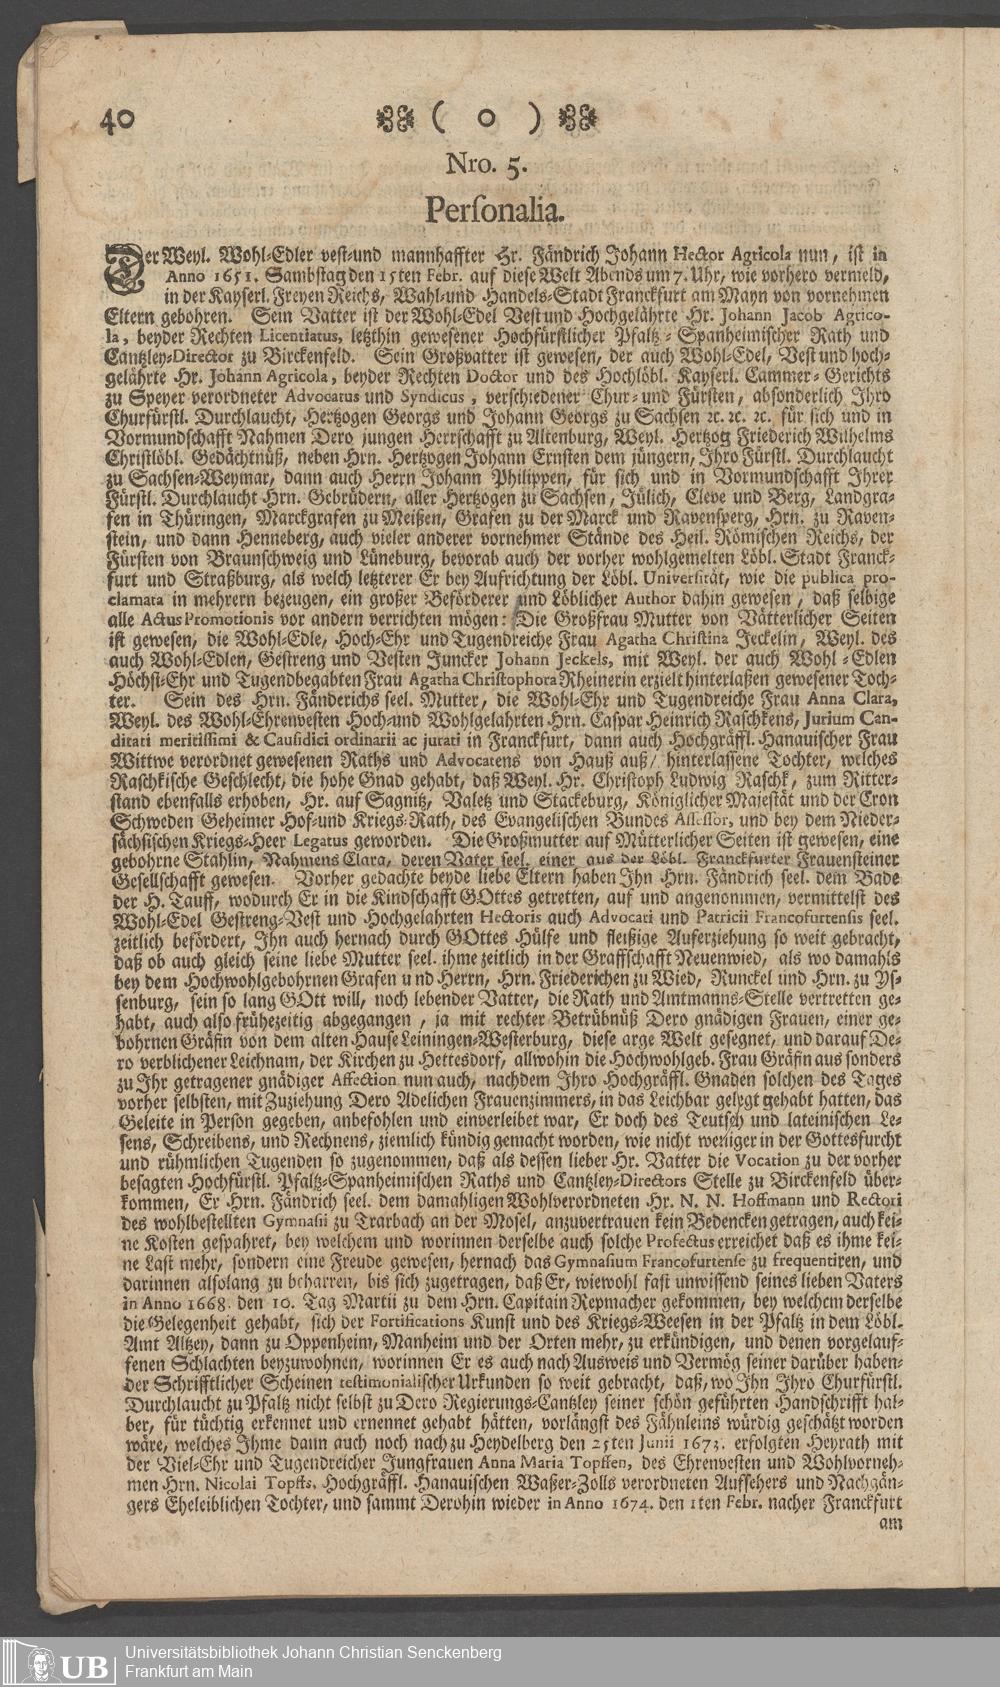 40 ( o )
Nro. 5.
Personalia.
Der Weyl. Wohl-Edler vest-und mannhaffter Hr. Fändrich Johann Hector Agricola nun, ist in
Anno 1651. Sambstag den 15ten Febr. auf diese Welt Abends um 7. Uhr, wie vorhero vermeld,
in der Kayserl. Freyen Reichs, Wahl-und Handels-Stadt Franckfurt am Mayn von vornehmen
Eltern gebohren. Sein Vatter ist der Wohl-Edel Vest und Hochgelährte Hr. Johann Jacob Agrico-
la, beyder Rechten Licentiatus, letzthin gewesener Hochfürstlicher Pfaltz-Spanheimischer Rath und
Cantzley-Director zu Birckenfeld. Sein Großvatter ist gewesen, der auch Wohl-Edel, Vest und hoch-
gelährte Hr. Johann Agricola, beyder Rechten Doctor und des Hochlöbl. Kayserl. Cammer-Gerichts
zu Speyer verordneter Advocatus und Syndicus, verschiedener Chur-und Fürsten, absonderlich Ihro
Churfürstl. Durchlaucht, Hertzogen Georgs und Johann Georgs zu Sachsen ꝛc. ꝛc. ꝛc. für sich und in
Vormundschafft Nahmen Dero jungen Herrschafft zu Altenburg, Weyl. Hertzog Friederich Wilhelms
Christlöbl. Gedächtnüß, neben Hrn. Hertzogen Johann Ernsten dem jüngern, Ihro Fürstl. Durchlaucht
zu Sachsen-Weymar, dann auch Herrn Johann Philippen, für sich und in Vormundschafft Ihrer
Fürstl. Durchlaucht Hrn. Gebrüdern, aller Hertzogen zu Sachsen, Jülich, Cleve und Berg, Landgra-
fen in Thüringen, Marckgrafen zu Meißen, Grafen zu der Marck und Ravensperg, Hrn. zu Raven-
stein, und dann Henneberg, auch vieler anderer vornehmer Stände des Heil. Römischen Reichs, der
Fürsten von Braunschweig und Lüneburg, bevorab auch der vorher wohlgemelten Löbl. Stadt Franck-
furt und Straßburg, als welch letzterer Er bey Aufrichtung der Löbl. Universität, wie die publica pro-
clamata in mehrern bezeugen, ein großer Beförderer und Löblicher Author dahin gewesen, daß selbige
alle Actus Promotionis vor andern verrichten mögen: Die Großfrau Mutter von Vätterlicher Seiten
ist gewesen, die Wohl-Edle, Hoch-Ehr und Tugendreiche Frau Agatha Christina Jeckelin, Weyl. des
auch Wohl-Edlen, Gestreng und Vesten Juncker Johann Jeckels, mit Weyl. der auch Wohl-Edlen
Höchst-Ehr und Tugendbegabten Frau Agatha Christophora Rheinerin erzielt hinterlaßen gewesener Toch-
ter. Sein des Hrn. Fänderichs seel. Mutter, die Wohl-Ehr und Tugendreiche Frau Anna Clara,
Weyl. des Wohl-Ehrenvesten Hoch-und Wohlgelahrten Hrn. Caspar Heinrich Raschkens, Jurium Can-
ditati meritissimi & Causidici ordinarii ac jurati in Franckfurt, dann auch Hochgräffl. Hanauischer Frau
Wittwe verordnet gewesenen Raths und Advocatens von Hauß auß/ hinterlassene Tochter, welches
Raschkische Geschlecht, die hohe Gnad gehabt, daß Weyl. Hr. Christoph Ludwig Raschk, zum Ritter-
stand ebenfalls erhoben, Hr. auf Sagnitz, Valetz und Stackeburg, Königlicher Majestät und der Cron
Schweden Geheimer Hof-und Kriegs-Rath, des Evangelischen Bundes Assessor, und bey dem Nieder-
sächsischen Kriegs-Heer Legatus geworden. Die Großmutter auf Mütterlicher Seiten ist gewesen, eine
gebohrne Stahlin, Nahmens Clara, deren Vater seel. einer aus der Löbl. Franckfurter Frauensteiner
Gesellschafft gewesen. Vorher gedachte beyde liebe Eltern haben Ihn Hrn. Fändrich seel. dem Bade
der H. Tauff, wodurch Er in die Kindschafft GOttes getretten, auf und angenommen, vermittelst des
Wohl-Edel Gestreng-Vest und Hochgelahrten Hectoris auch Advocati und Patricii Francofurtensis seel.
zeitlich befördert, Ihn auch hernach durch GOttes Hülfe und fleißige Auferziehung so weit gebracht,
daß ob auch gleich seine liebe Mutter seel. ihme zeitlich in der Graffschafft Neuenwied, als wo damahls
bey dem Hochwohlgebohrnen Grafen und Herrn, Hrn. Friederichen zu Wied, Runckel und Hrn. zu Ys-
senburg, sein so lang GOtt will, noch lebender Vatter, die Rath und Amtmanns-Stelle vertretten ge-
habt, auch also frühezeitig abgegangen, ja mit rechter Betrübnüß Dero gnädigen Frauen, einer ge-
bohrnen Gräfin von dem alten Hause Leiningen-Westerburg, diese arge Welt gesegnet, und darauf De-
ro verblichener Leichnam, der Kirchen zu Hettesdorf, allwohin die Hochwohlgeb. Frau Gräfin aus sonders
zu Ihr getragener gnädiger Affection nun auch, nachdem Ihro Hochgräffl. Gnaden solchen des Tages
vorher selbsten, mit Zuziehung Dero Adelichen Frauenzimmers, in das Leichbar gelegt gehabt hatten, das
Geleite in Person gegeben, anbefohlen und einverleibet war, Er doch des Teutsch und lateinischen Le-
sens, Schreibens, und Rechnens, ziemlich kündig gemacht worden, wie nicht weniger in der Gottesfurcht
und rühmlichen Tugenden so zugenommen, daß als dessen lieber Hr. Vatter die Vocation zu der vorher
besagten Hochfürstl. Pfaltz-Spanheimischen Raths und Cantzley-Directors Stelle zu Birckenfeld über-
kommen, Er Hrn. Fändrich seel. dem damahligen Wohlverordneten Hr. N. N. Hoffmann und Rectori
des wohlbestellten Gymnasii zu Trarbach an der Mosel, anzuvertrauen kein Bedencken getragen, auch kei-
ne Kosten gespahret, bey welchem und worinnen derselbe auch solche Profectus erreichet daß es ihme kei-
ne Last mehr, sondern eine Freude gewesen, hernach das Gymnasium Francofurtense zu frequentiren, und
darinnen alsolang zu beharren, bis sich zugetragen, daß Er, wiewohl fast unwissend seines lieben Vaters
in Anno 1668. den 10. Tag Martii zu dem Hrn. Capitain Repmacher gekommen, bey welchem derselbe
die Gelegenheit gehabt, sich der Fortifications Kunst und des Kriegs-Weesen in der Pfaltz in dem Löbl.
Amt Altzey, dann zu Oppenheim, Manheim und der Orten mehr, zu erkündigen, und denen vorgelauf-
fenen Schlachten beyzuwohnen, worinnen Er es auch nach Ausweis und Vermög seiner darüber haben-
der Schrifftlicher Scheinen testimonialischer Urkunden so weit gebracht, daß, wo Ihn Ihro Churfürstl.
Durchlaucht zu Pfaltz nicht selbst zu Dero Regierungs-Cantzley seiner schön geführten Handschrifft hal-
ber, für tüchtig erkennet und ernennet gehabt hätten, vorlängst des Fähnleins würdig geschätzt worden
wäre, welches Ihme dann auch noch nach zu Heydelberg den 25ten Junii 1673. erfolgten Heyrath mit
der Viel-Ehr und Tugendreicher Jungfrauen Anna Maria Topffen, des Ehrenvesten und Wohlvorneh-
men Hrn. Nicolai Topffs, Hochgräffl. Hanauischen Waßer-Zolls verordneten Aufsehers und Nachgän-
gers Eheleiblichen Tochter, und sammt Derohin wieder in Anno 1674. den 1ten Febr. nacher Franckfurt
am
UB Universitätsbibliothek Johann Christian Senckenberg
Frankfurt am Main